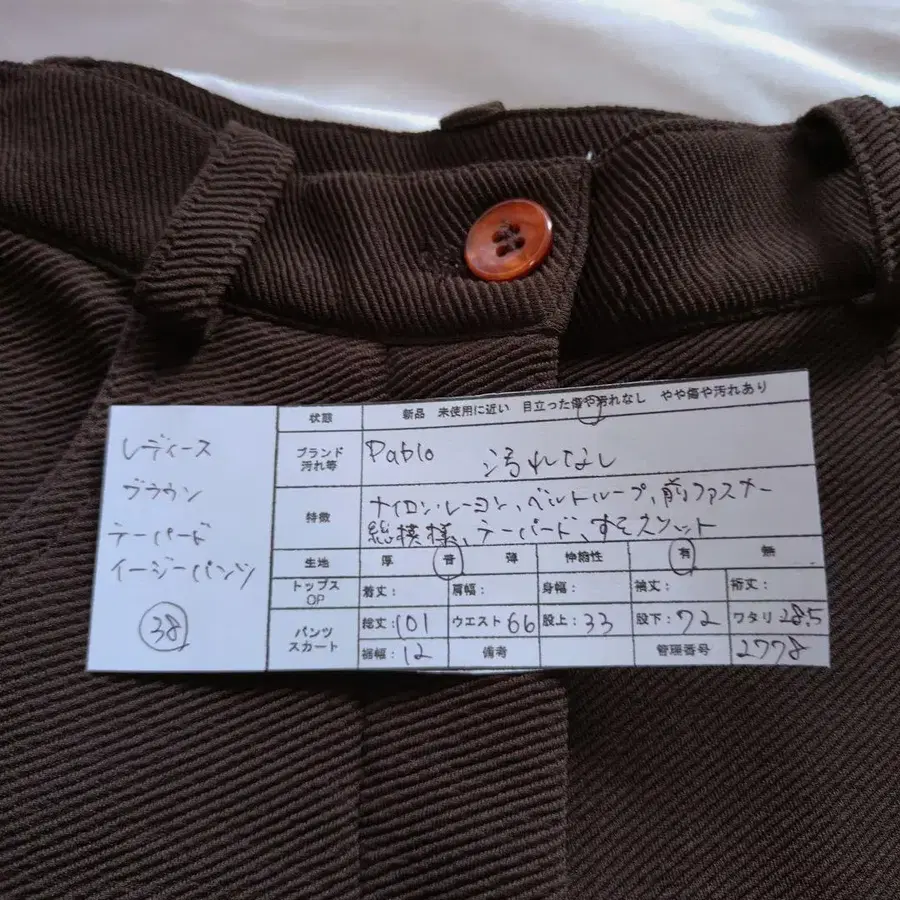 レディース
ブラウン
テーパード
イージーパンツ
38
状態 新品 未使用に近い 目立った傷や汚れなし やや傷や汚れあり
ブランド 汚れ等 Pablo 汚れなし
特徴 ナイロン・レーヨン、ベルトループ、前ファスナー
総模様、テーパード、すそスリット
生地 厚 普 薄 伸縮性 有 無
トップス OP 着丈： 肩幅： 身幅： 袖丈： 裄丈：
パンツ スカート 総丈：101 ウエスト66 股上：33 股下：72 ワタリ28.5
裾幅：12 備考 管理番号 2778